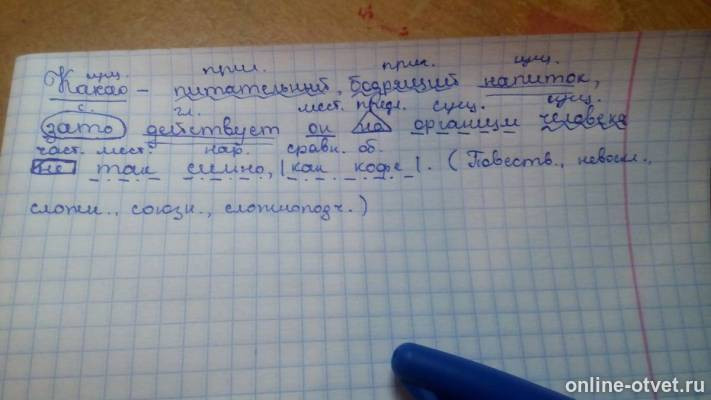 сущ. прил. прил. сущ.
Какао – питательный, бодрящий напиток,
с. гл. мест. предл. сущ. сущ.
зато действует он на организм человека
част. мест. нар. сравн. об.
не так сильно, |как кофе|. (Повеств., невоскл.,
сложн., союзн., сложноподч.)
online-otvet.ru